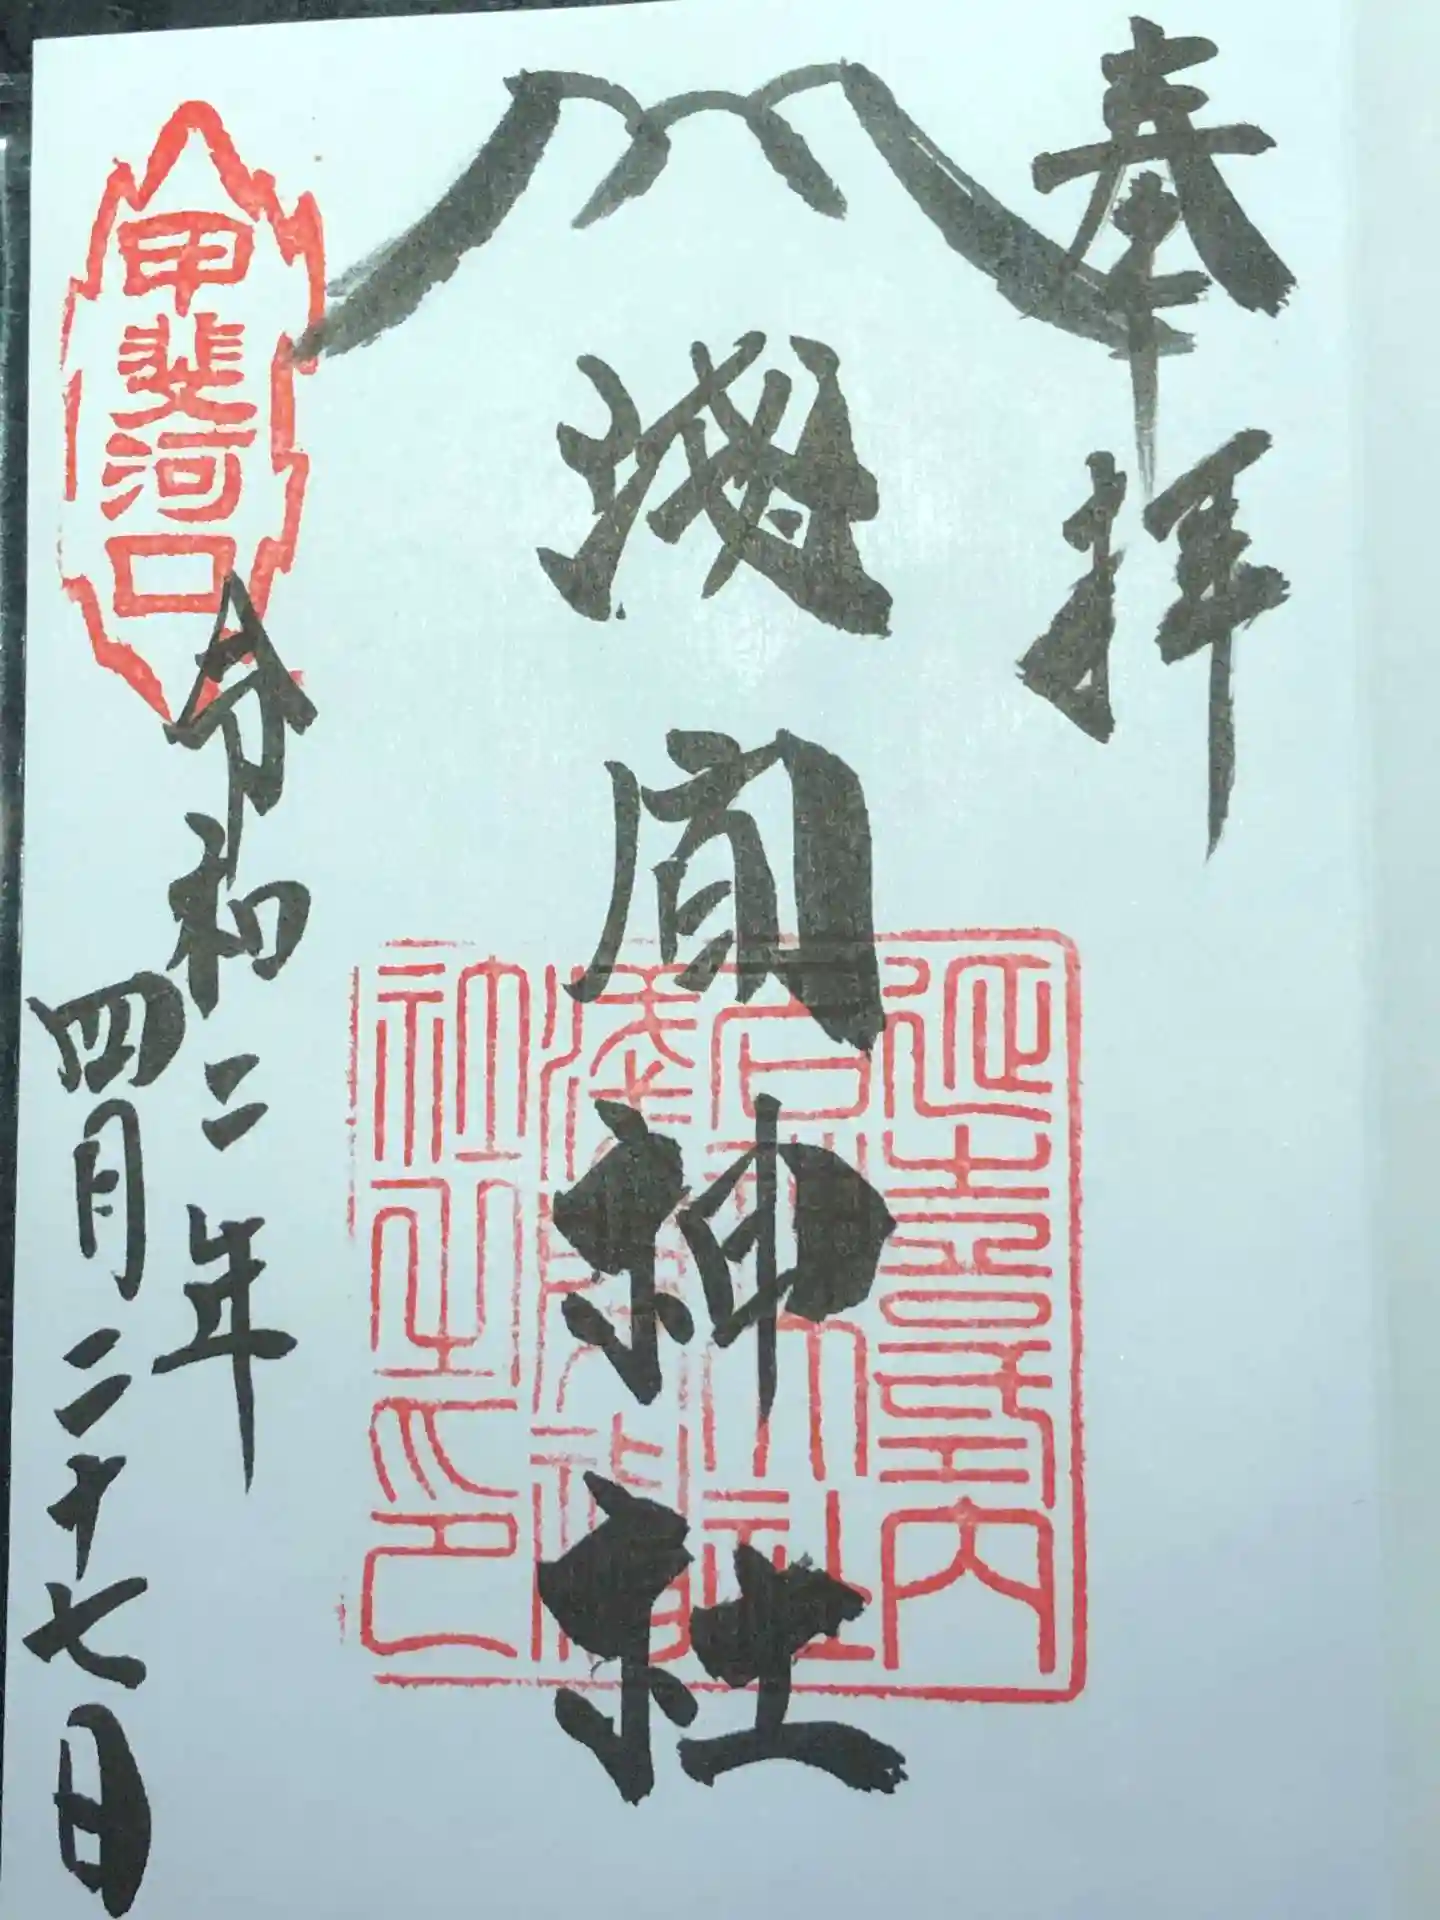 奉拝
浅間神社
延喜式内
名神大社
浅間神社之印
甲斐河口
令和二年
四月二十七日